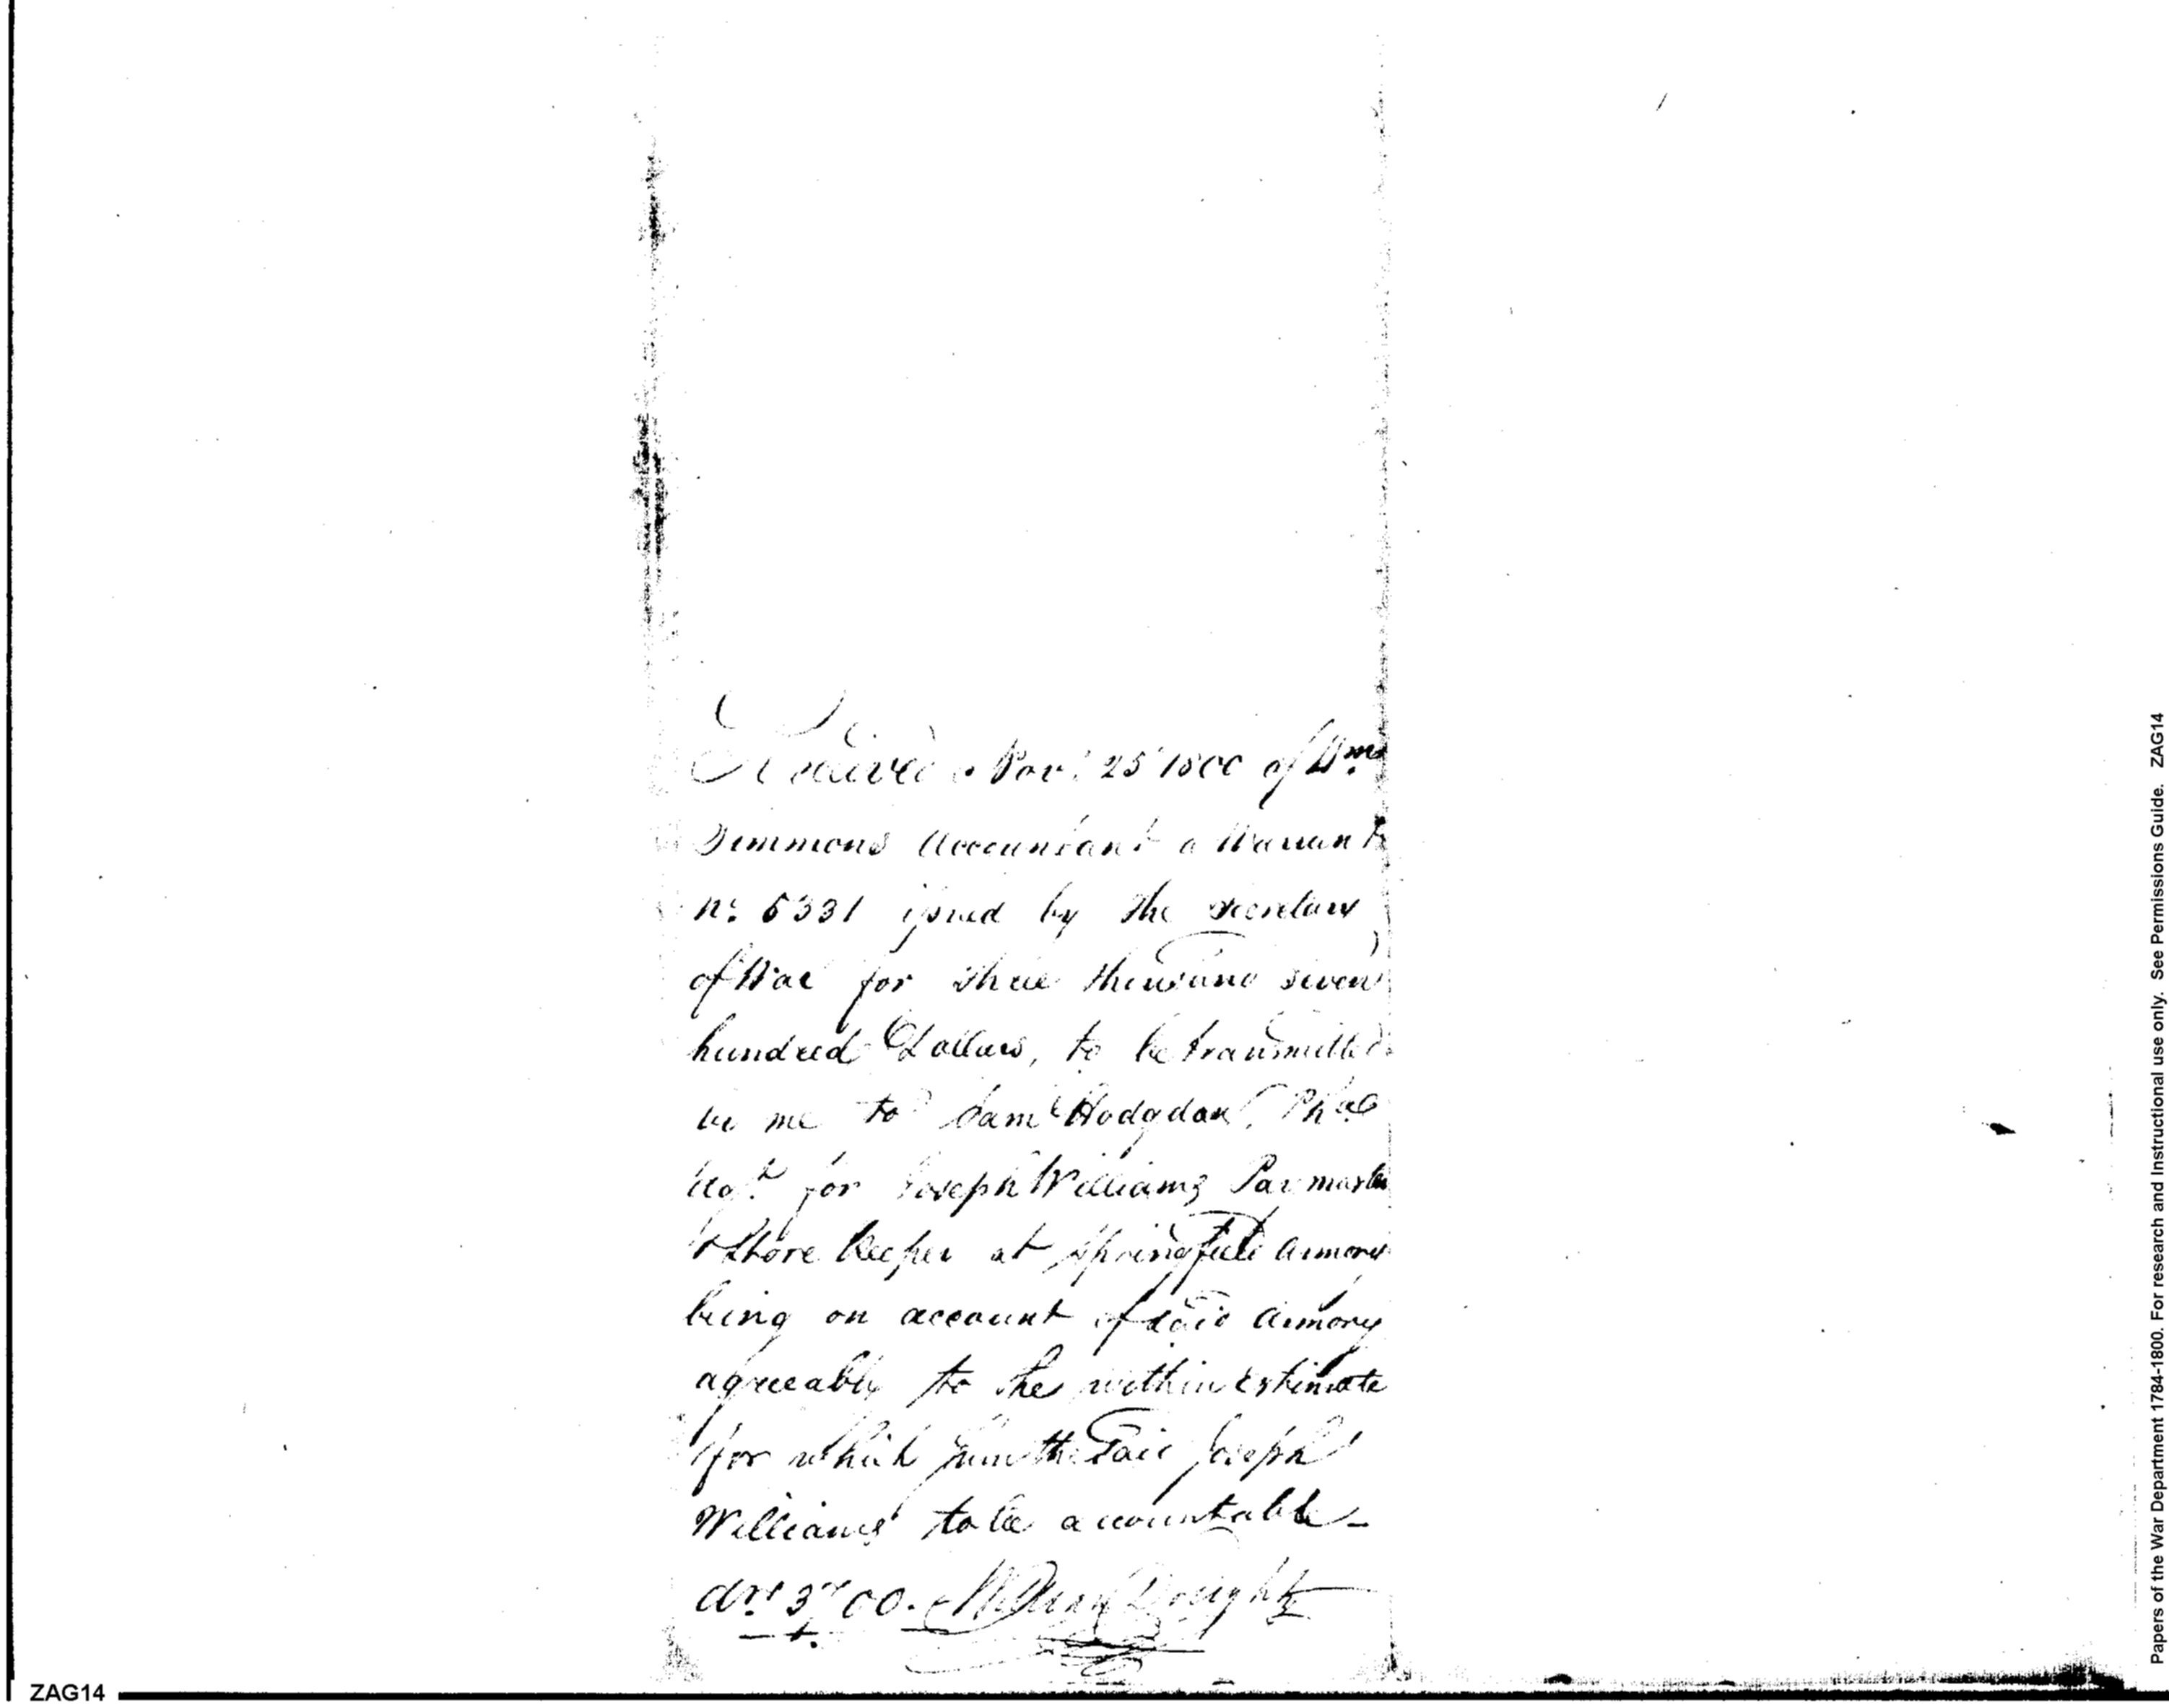 Received Novr. 25 1800 of Wm.
Simmons Accountant a Warrant
No. 5331 issued by the Secretary
of War for three thousand seven
hundred Dollars, to be transmitted
by me to Saml Hodgdon, Phila
Agt. for Joseph Williams Paymaster
& Store Keeper at Springfield Armory
being on account of said Armory
agreeably to the within Estimate
for which sum the said Joseph
Williams to be accountable-
3700. Dwight
ZAG14
Papers of the War Department 1784-1800. For research and Instructional use only. See Permissions Guide. ZAG14